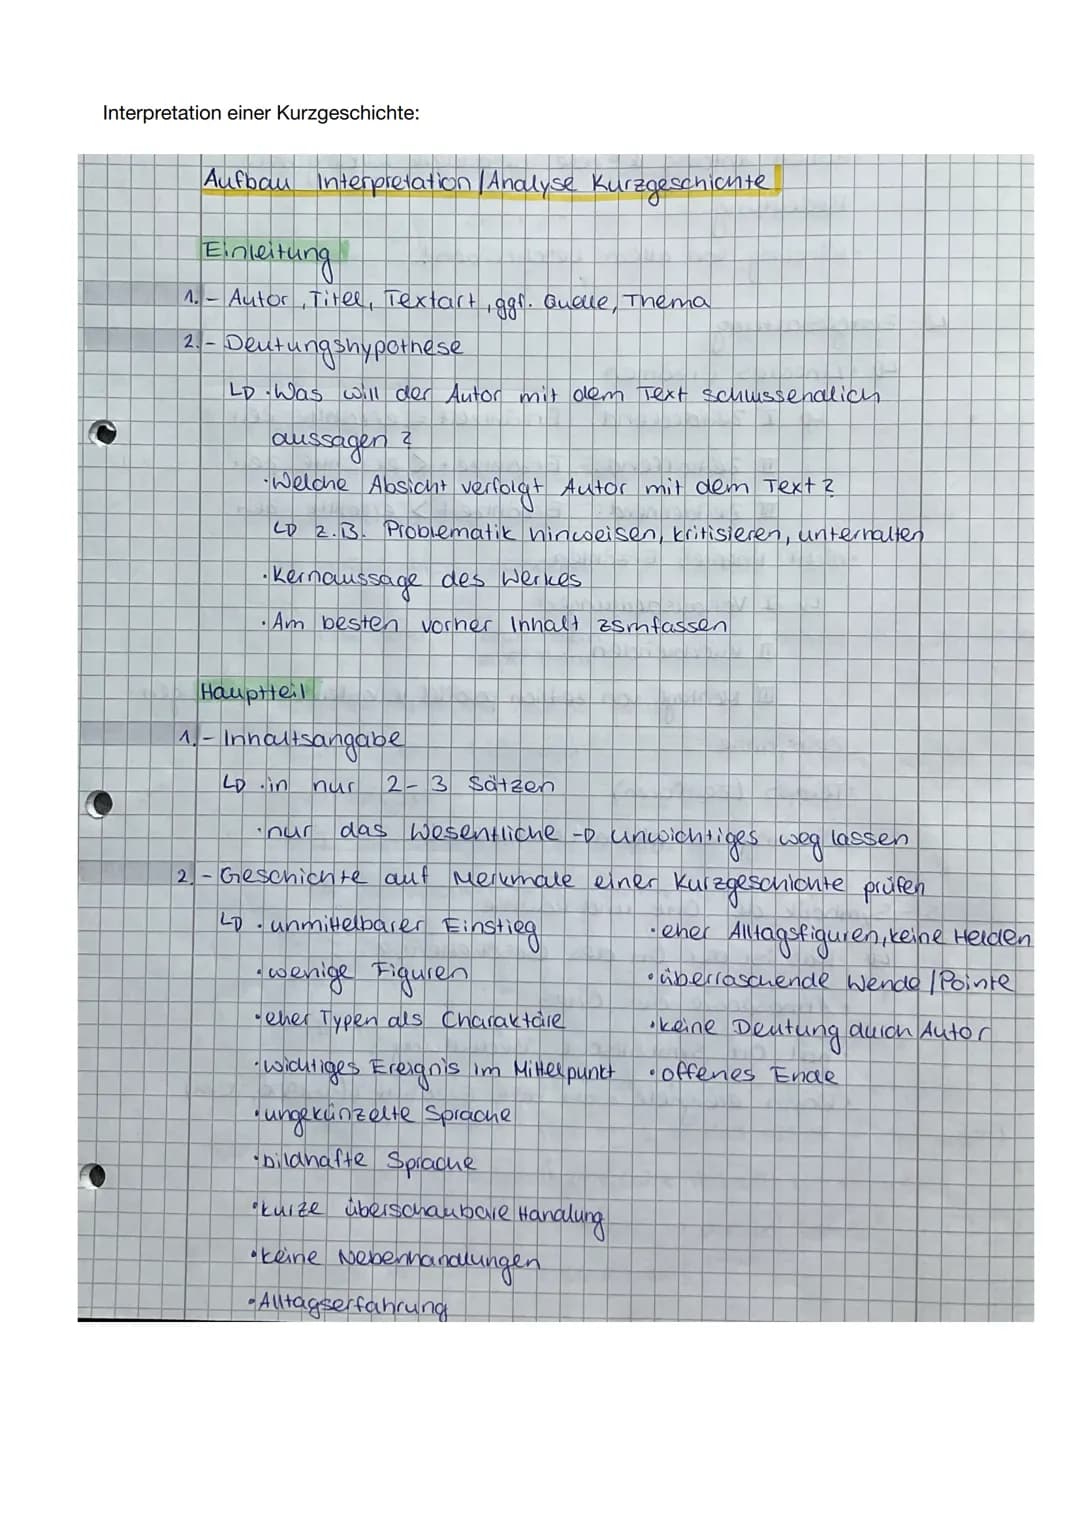 Interpretation einer Kurzgeschichte:
Aufbau Interpretation/Analyse Kurzgeschichte
Einleitung
1. - Autor, Titel, Textart, ggf. Quelle, Thema
2. - Deutungshypothese
↳ · Was will der Autor mit dem Text schlussendlich
aussagen?
· Welche Absicht verfolgt Autor mit dem Text?
↳ z.B. Problematik hinweisen, kritisieren, unterhalten
· Kernaussage des Werkes
· Am besten vorher Inhalt zsmfassen
Hauptteil
1. - Inhaltsangabe
↳ · in nur 2-3 Sätzen
· nur das Wesentliche → unwichtiges weg lassen
2. - Geschichte auf Merkmale einer Kurzgeschichte prüfen
↳ · unmittelbarer Einstieg · eher Alltagsfiguren, keine Helden
· wenige Figuren · überraschende Wende/Pointe
· eher Typen als Charaktäre · keine Deutung durch Autor
· wichtiges Ereignis im Mittelpunkt · offenes Ende
· ungekünzelte Sprache
· bildhafte Sprache
· kurze überschaubare Handlung
· keine Nebenhandlungen
· Alltagserfahrung